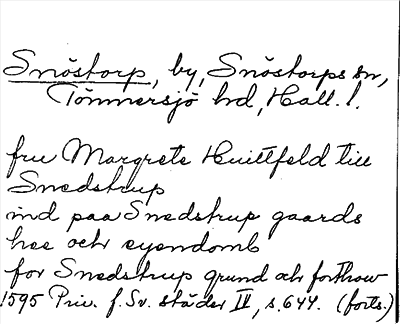 Snöstorp, by, Snöstorps sn,
Tönnersjö hd, Hall. l.
fru Margrete Huittfeld till
Snedstrup
ind paa Snedstrup gaards
hee och eyendomb
for Snedstrup grund och forthow
1595 Priv. f. Sv. städer IV, s. 644. (forts.)